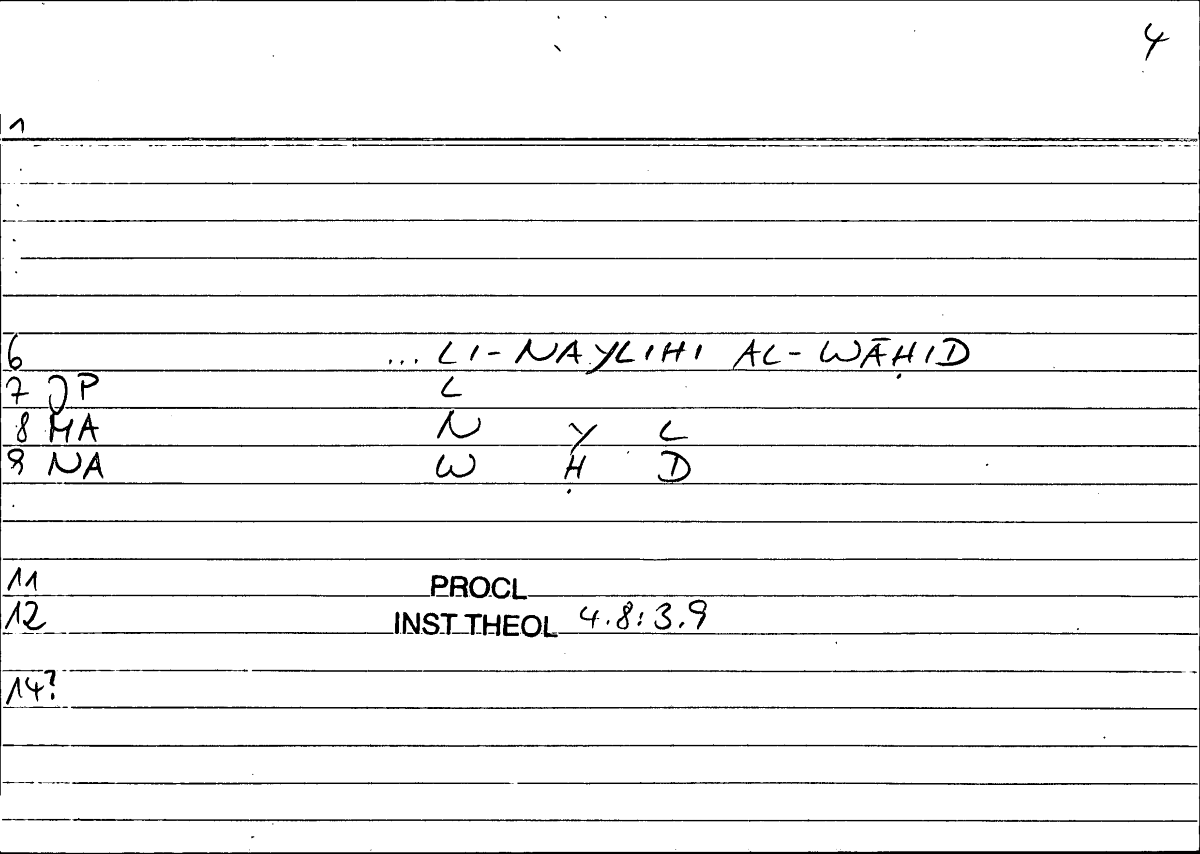 4
1
6 ... LI-NAYLIHI AL-WĀḤID
7 JP L
8 MA N Y L
9 NA W Ḥ D
11 PROCL
12 INST THEOL 4.8:3.9
14?